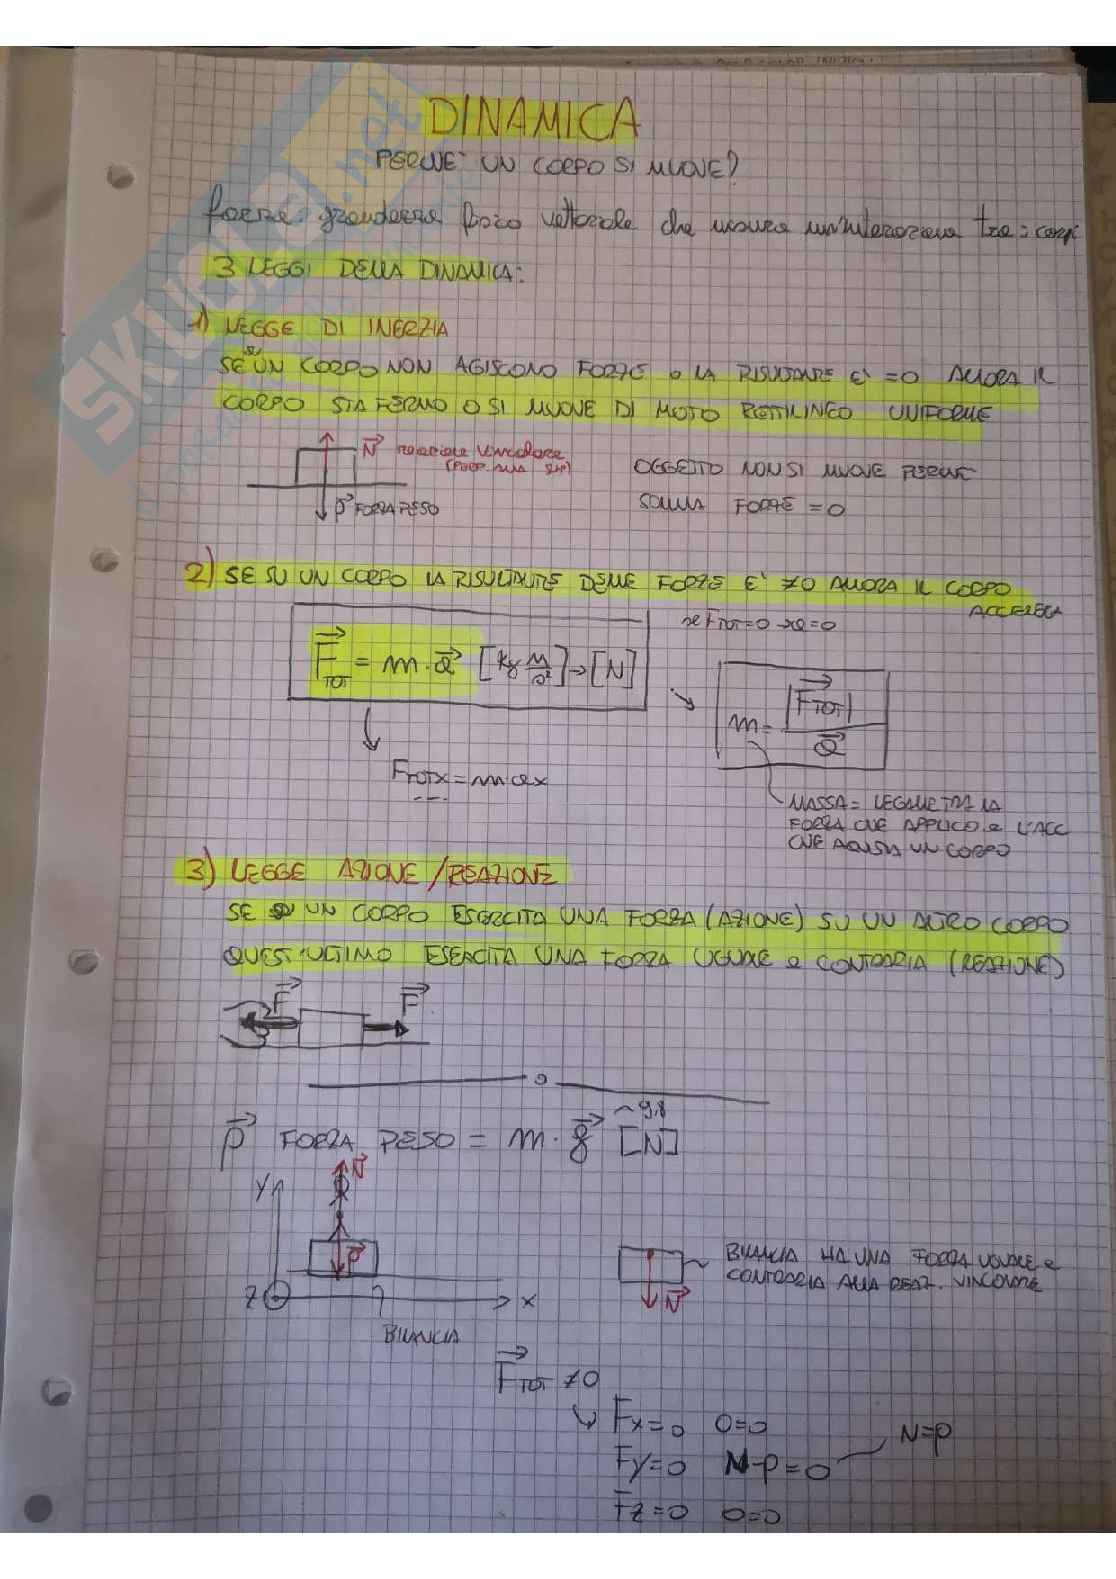 DINAMICA
PERCHE' UN CORPO SI MUOVE?
forza: grandezza fisica vettoriale che misura un'interazione tra i corpi
3 LEGGI DELLA DINAMICA:
1) LEGGE DI INERZIA
SE SU UN CORPO NON AGISCONO FORZE o LA RISULTANTE E' =0 ALLORA IL
CORPO STA FERMO O SI MUOVE DI MOTO RETTILINEO UNIFORME
N reazione vincolare
(PERP. ALLA SUP)
OGGETTO NON SI MUOVE PERCHE'
SOMMA FORZE = 0
P FORZA PESO
2) SE SU UN CORPO LA RISULTANTE DELLE FORZE E' ≠0 ALLORA IL CORPO
ACCELERA
se FTOT=0 → a=0
FTOT = m·a [kg m/s²] → [N]
m = |FTOT| / a
FTOTx = m ax
MASSA = LEGAME TRA LA
FORZA CHE APPLICO e L'ACC
CHE ACQUISTA UN CORPO
3) LEGGE AZIONE/REAZIONE
SE UN CORPO ESERCITA UNA FORZA (AZIONE) SU UN ALTRO CORPO
QUEST'ULTIMO ESERCITA UNA FORZA UGUALE e CONTRARIA (REAZIONE)
F F
P FORZA PESO = m·g [N]
~9,8
N
Y
P
BILANCIA HA UNA FORZA UGUALE e
CONTRARIA ALLA REAZ. VINCOLARE
Z X N
BILANCIA
FTOT ≠0
Fx=0 0=0
Fy=0 N-P=0 N=P
Fz=0 0=0
SKUOLA.net